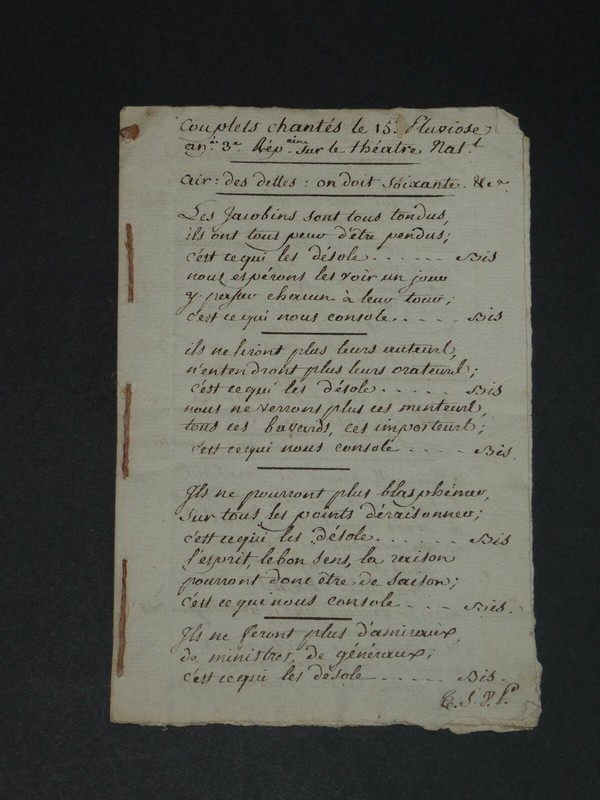 Couplets chantés le 15. Pluviose
an. 3e. Rép.aine sur le théatre Nat.l
air: des dettes: on doit soixante. &ca.
Les Jacobins sont tous tondus,
ils ont tous peur d'être pendus;
c'est ce qui les désole ..... Bis
nous espérons les voir un jour
y passer chacun à leur tour;
c'est ce qui nous console ..... Bis
ils ne liront plus leurs auteurs,
n'entendront plus leurs orateurs;
c'est ce qui les désole ..... Bis
nous ne verrons plus ces menteurs,
tous ces bavards, ces imposteurs;
c'est ce qui nous console .... Bis.
Ils ne pourront plus blasphémer,
sur tous les points déraisonner;
c'est ce qui les désole ..... Bis
l'esprit, le bon sens, la raison
pourront donc être de saison;
c'est ce qui nous console .... Bis.
Ils ne feront plus d'amiraux,
de ministres, de généraux;
c'est ce qui les désole ..... Bis.